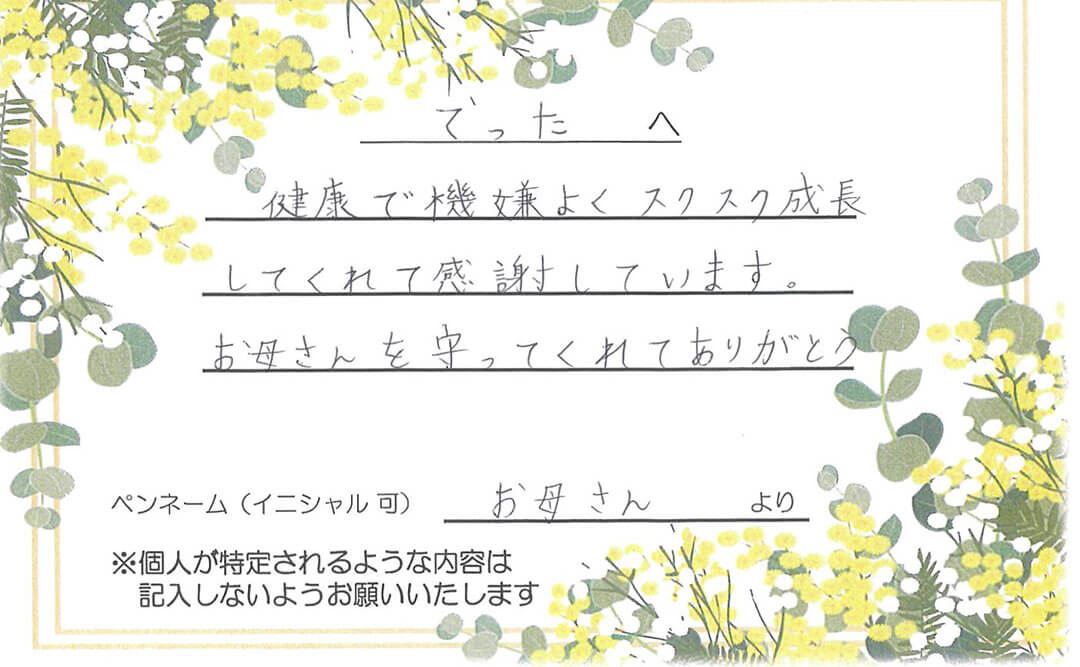 でった へ
健康で機嫌よくスクスク成長
してくれて感謝しています。
お母さんを守ってくれてありがとう
ペンネーム（イニシャル 可） お母さん より
※個人が特定されるような内容は
記入しないようお願いいたします